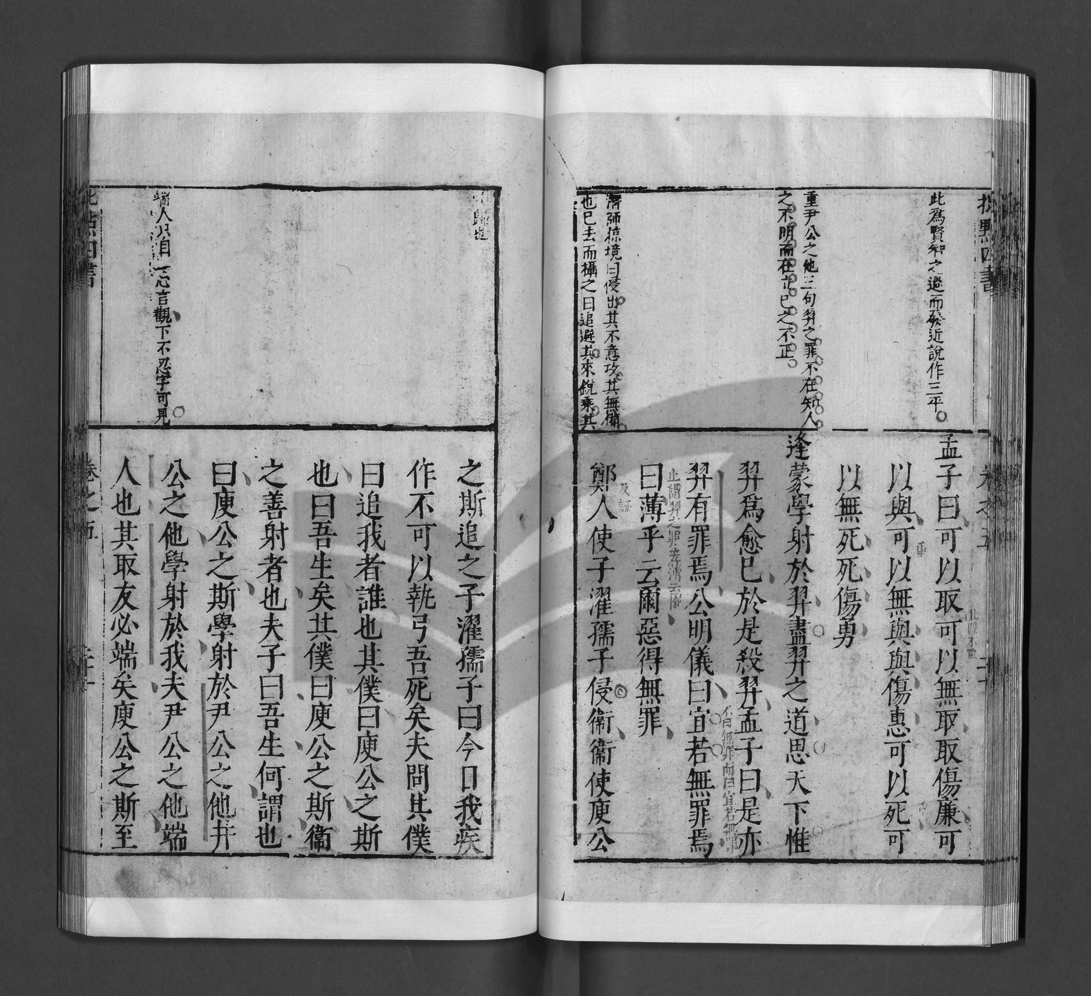 批點四書
卷之五
二十
此為賢知之過而發近說作三平
重尹公之他三句羿之罪不在知人
之不明而在立己之不正
潛師掠境曰侵出其不意攻其無備
也已去而攝之曰追避其來銳乘其
孟子曰可以取可以無取取傷廉可
以與可以無與與傷惠可以死可
以無死死傷勇
逄蒙學射於羿盡羿之道思天下惟
羿為愈己於是殺羿孟子曰是亦
不曰無罪而曰宜若無
羿有罪焉公明儀曰宜若無罪焉
曰薄乎云爾惡得無罪
鄭人使子濯孺子侵衞衞使庾公
歸也
端人只自一心言觀下不忍字可見
之斯追之子濯孺子曰今日我疾
作不可以執弓吾死矣夫問其僕
曰追我者誰也其僕曰庾公之斯
也曰吾生矣其僕曰庾公之斯衞
之善射者也夫子曰吾生何謂也
曰庾公之斯學射於尹公之他尹
公之他學射於我夫尹公之他端
人也其取友必端矣庾公之斯至
批點四書
卷之五